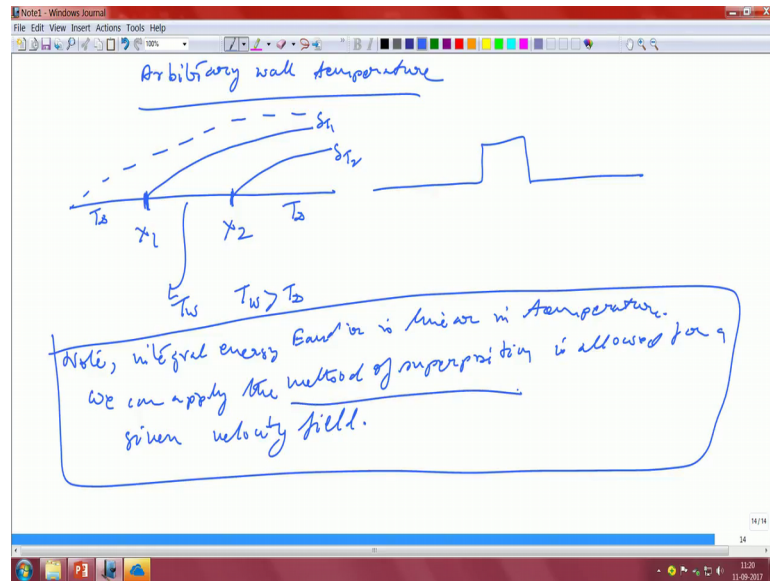 Note1 - Windows Journal
File Edit View Insert Actions Tools Help
100%
B I
Arbitrary wall temperature
δT1
δT2
T∞ x1 x2 T∞
Tw Tw > T∞
Note, integral energy Equation is linear in temperature.
we can apply the method of superposition is allowed for a
given velocity field.
14/14
14
11:20
11-09-2017